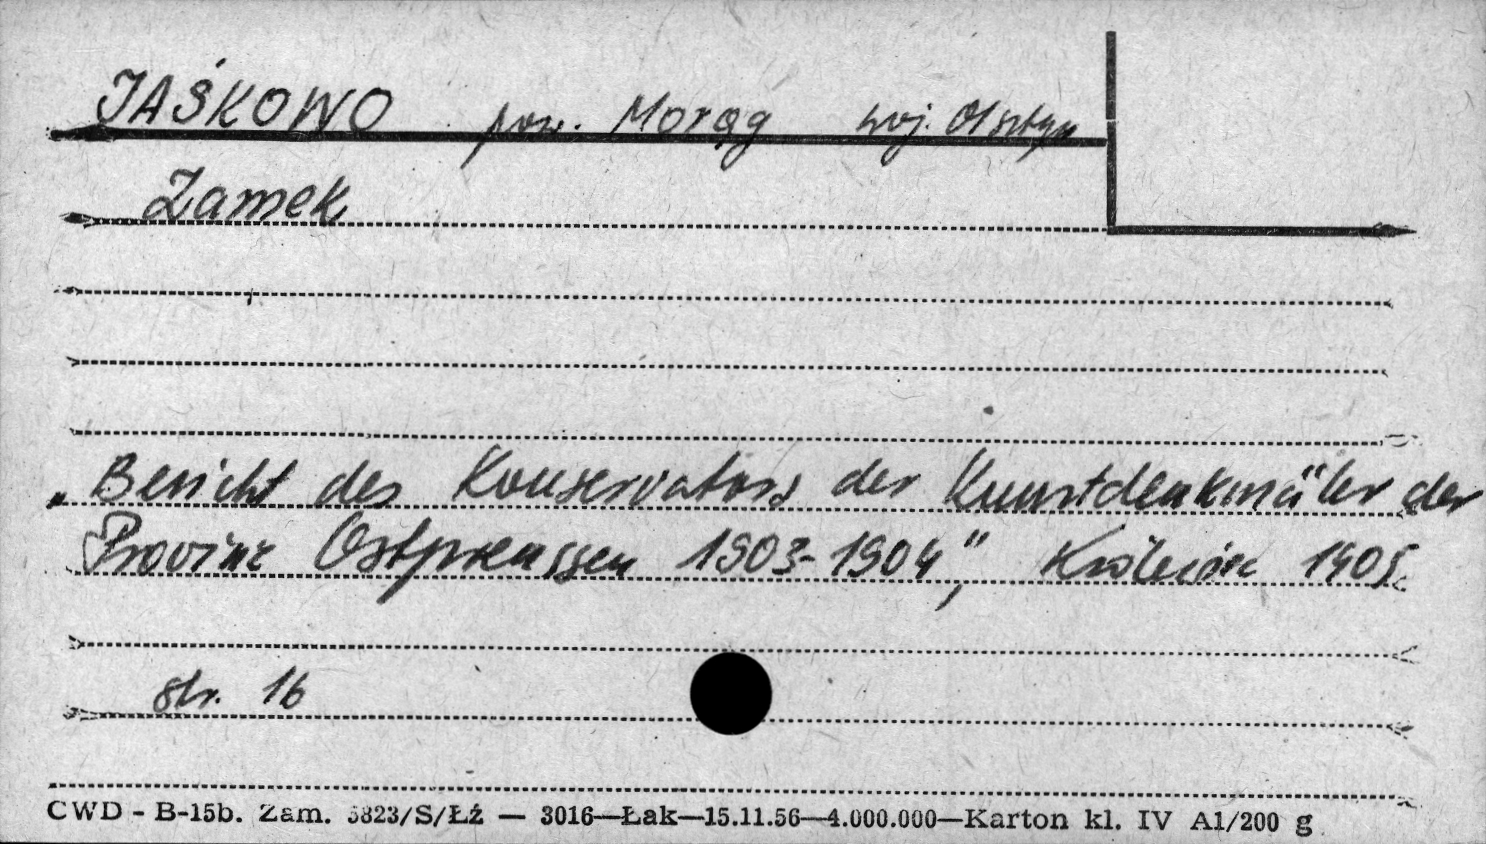 JAŚKOWO pow. Morąg woj. Olsztyn
Zamek
„Bericht des Konservators der Kunstdenkmäler der
Provinz Ostpreussen 1903-1904", Królewiec 1905
str. 16
CWD - B-15b. Zam. 5823/S/Łź — 3016—Łak—15.11.56—4.000.000—Karton kl. IV A1/200 g